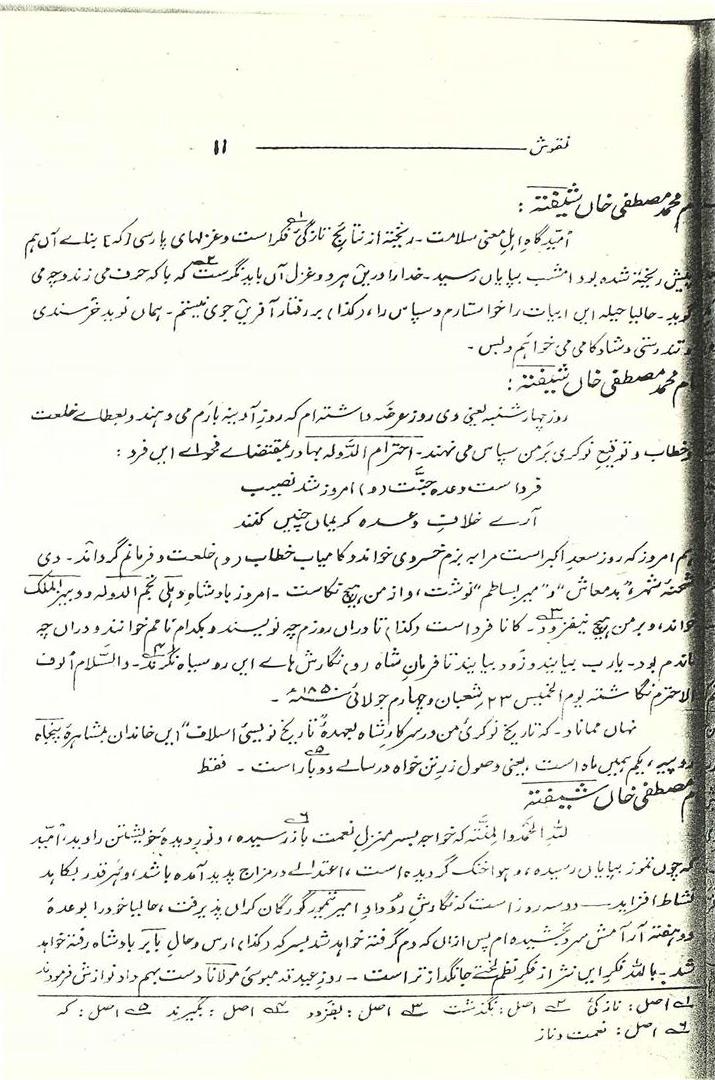 نقوش ——— 11
م محمد مصطفی خاں شیفتہ :
اُمید گاہِ اہلِ معنی سلامت ۔ ریختہ از نتایجِ تازگیٔ فکر است و غزلہای پارسی [کہ] بناے آں ہم
پیش ریختہ شدہ بود امشب بپایاں رسید ۔ خدارا در ہر دو غزل آں باید نگرست کہ با کہ حرف می زند و چہ می
گوید ۔ حالیا حیلہ ایں ابیات را خواستارم و سپاس را، (کذا) بر رفتار آفریں جوی نیستم ۔ ہماں نوید خرسندی
و تندرستی و شادکامی می خواہم و بس ۔
م محمد مصطفی خاں شیفتہ :
روز چہارشنبہ یعنی دی روز عرضہ داشتہ ام کہ روز آدینہ بارم می دہند و بعطاے خلعت
و خطاب و توقیع نوکری بر من سپاس می نہند ۔ احترام الدّولہ بہادر بمقتضاے فحواے ایں فرد :
فرداست وعدہ جنّت (و) امروز شد نصیب
آرے خلافِ وعدہ کریماں چنیں کنند
ہم امروز کہ روز سعد اکبر است مرا بہ بزم خسروی خواند و کامیاب خطاب (و) خلعت و فرمانم گرداند ۔ دی
شحنۂ شہرم "بدمعاش" و "میر بساطم" نوشت، و از من ہیچ نکاست ۔ امروز بادشاہِ دہلی نجم الدولہ و دبیر الملک
خواند، و بر من ہیچ نیفزود ۔ کانا فرداست (کذا) تا دراں روزم چہ نویسند و بکدام نامم خوانند و دراں چہ
باندم بود ۔ یارب بیایند و زود بیایند تا فرمانِ شاہ (و) نگارش ہاے ایں رو سیاہ نگرند ۔ والسّلام الوف
الاحترم نگاشتہ یوم الخمیس ۲۳ شعبان و چہارم جولائی ۱۸۵۰ء ۔
نہاں مماناد ۔ کہ تاریخ نوکریٔ من در سرکارِ شاہ بعہدۂ "تاریخ نویسیٔ اسلاف" ایں خاندان بمشاہرۂ پنجاہ
روپیہ، یکم ہمیں ماہ است یعنی وصول زر تن خواہ در سالے دوبار است ۔ فقط
م مصطفی خاں شیفتہ
للّٰہ الحمد والمنّۃ کہ خواجہ بسر منزلِ نعمت باز رسیدہ، و نورِ دیدۂ خویشتن را دید، اُمید
کہ چوں تموز بپایاں رسیدہ، و ہوا خنک گردیدہ است، اعتدالے در مزاج پدید آمدہ باشد، و ہر قدر بکاہد
نشاط افزاید ۔ دو سہ روز است کہ نگارشِ رُودادِ امیر تیمور گورگان کراں پذیرفت، حالیا خود را بوعدۂ
دو ہفتہ آرامش سر بخشیدہ ام پس ازاں کہ دم گرفتہ خواہد شد بسر کہ (کذا) ارس و حالِ بابر بادشاہ رفتہ خواہد
شد ۔ باللّٰہ فکرِ ایں نثر از فکرِ نظم لختے جانگداز تر است ۔ روزِ عید قدمبوسیٔ مولانا دست بہم داد نوازش فرمودند
۱ اصل: نازکیٔ ۲ اصل: نگذشت ۳ اصل: بفزود ۴ اصل: بگیرند ۵ اصل: کہ
۶ اصل: نعمت و ناز